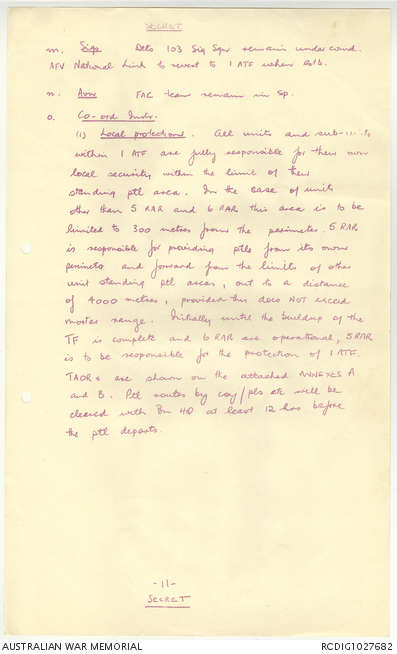 SECRET
m. Sigs Dets 103 Sig Sqn remain under comd.
AFV National Link to revert to 1 ATF when estb.
n. Avn FAC team remain in sp.
o. Co-ord Instr.
(i) Local protection. All units and sub-units
within 1 ATF are fully responsible for their own
local security within the limit of their
standing ptl area. In the case of units
other than 5 RAR and 6 RAR this area is to be
limited to 300 metres from the perimeter. 5 RAR
is responsible for providing ptls from its own
perimeter and forward from the limits of other
unit standing ptl areas, out to a distance
of 4000 metres, provided this does NOT exceed
mortar range. Initially until the buildup of the
TF is complete and 6 RAR are operational, 5 RAR
is to be responsible for the protection of 1 ATF.
TAORs are shown on the attached ANNEXES A
and B. Ptl routes by coy/pls etc will be
cleared with Bn HQ at least 12 hrs before
the ptl departs.
-11-
SECRET
AUSTRALIAN WAR MEMORIAL
RCDIG1027682